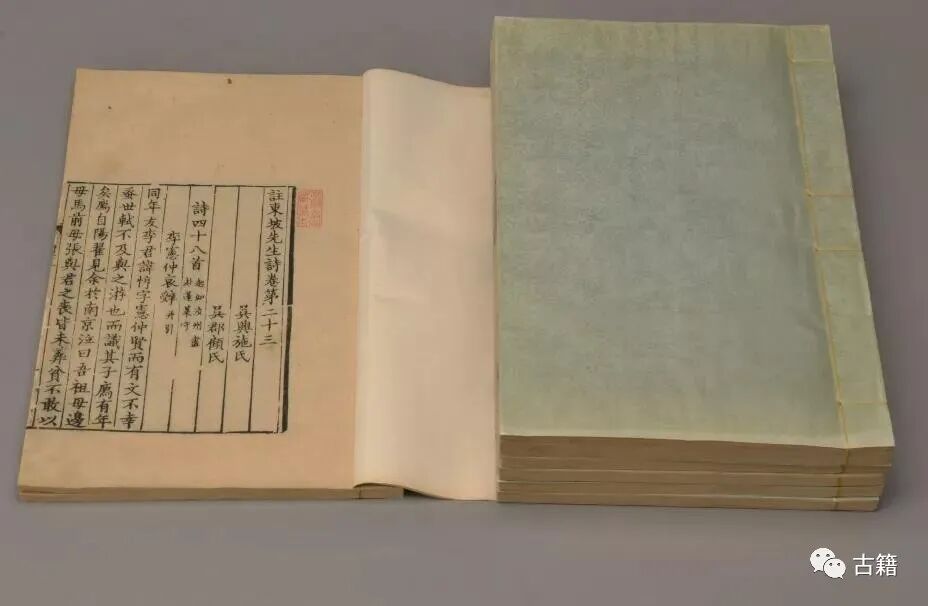 註東坡先生詩卷第二十三
吳興施氏
吳郡顧氏
詩四十八首
李憲仲哀辭 并引
同年友李君諱惇字憲仲賢而有文不幸
蚤世軾不及與之游也而識其子廌有年
矣廌自陽翟見余於南京泣曰吾祖母邊
母馬前母張與君之喪皆未葬貧不敢以
古籍